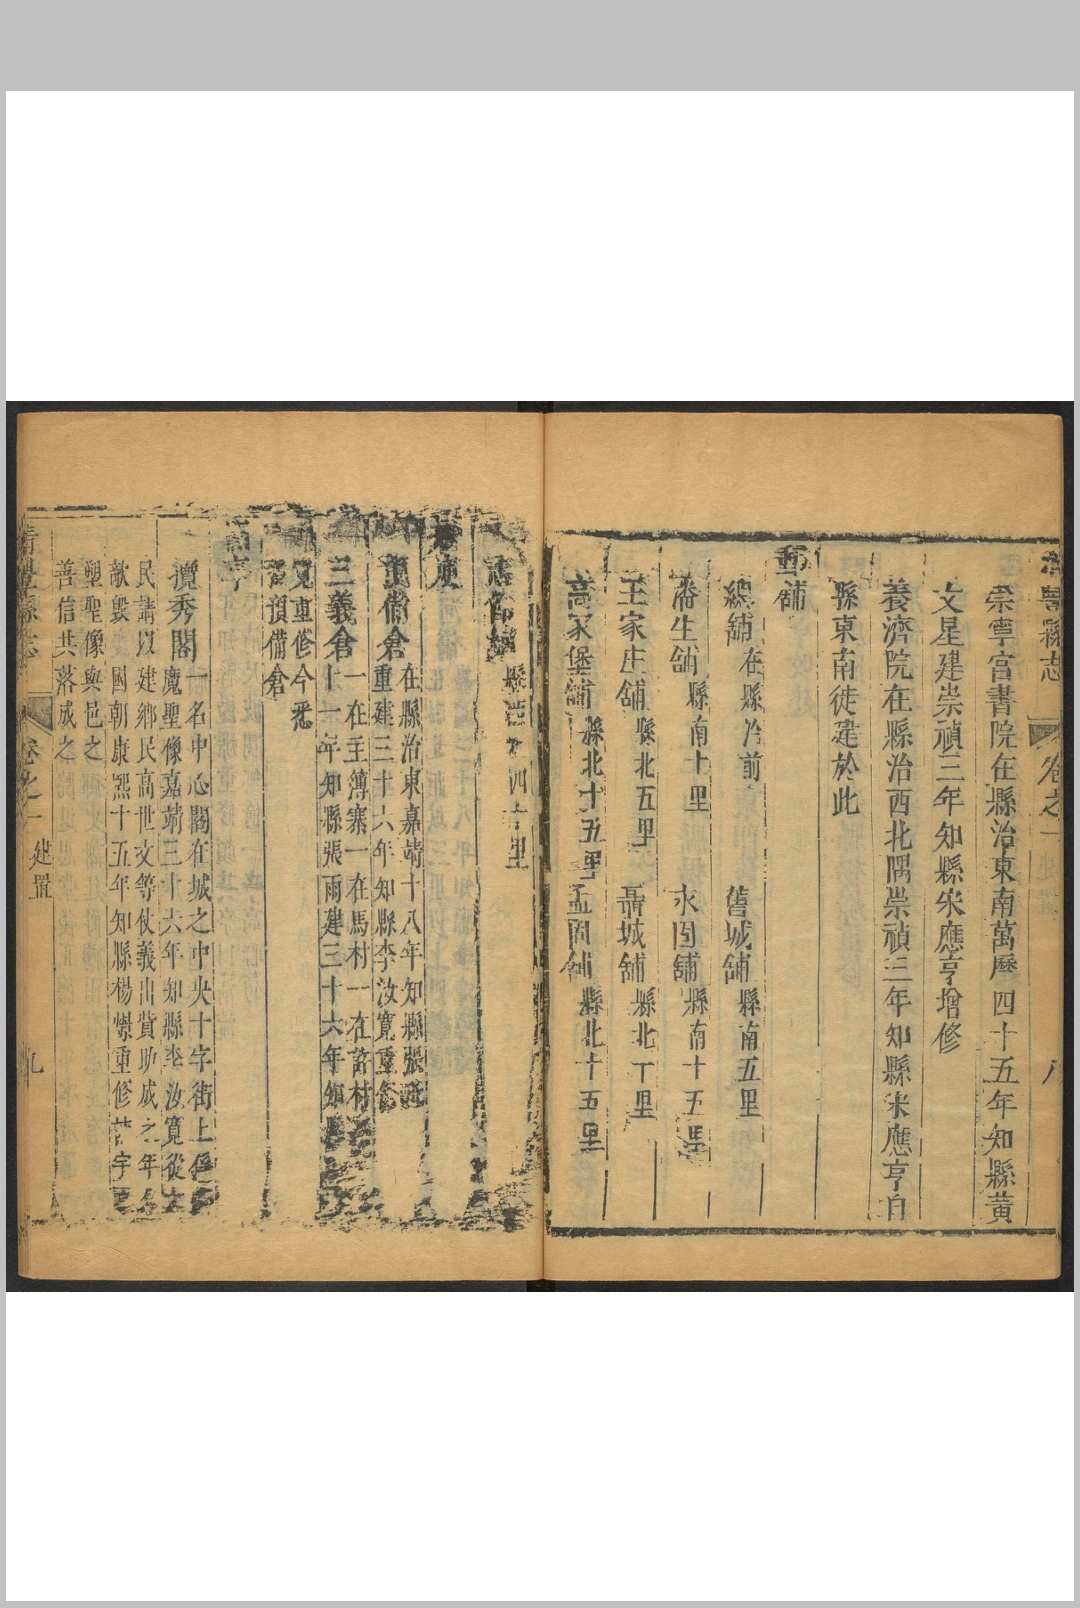 縣志
卷之一
崇寧宮書院在縣治東南萬曆四十五年知縣黃
文星建崇禎三年知縣宋應亨增修
養濟院在縣治西北隅崇禎三年知縣宋應亨自
縣東南徙建於此
舖
總舖在縣治前 舊城舖縣南五里
潘生舖縣南十里 永固舖縣南十五里
王家庄舖縣北五里 聶城舖縣北十里
高家堡舖縣北十五里 孟固舖縣北十五里
縣 四十里
預備倉在縣治東嘉靖十八年知縣張
重建三十六年知縣李汝寬重修
三義倉一在主簿寨一在馬村一在許村
十一年知縣張雨建三十六年知縣
又重修今悉
預備倉
亭
攬秀閣一名中心閣在城之中央十字街上係
魔聖像嘉靖三十六年知縣李汝寬從士
民請以建鄉民高世文等仗義出貲助成之年
歲毀 國朝康熙十五年知縣楊燝重修
塑聖像與邑之
善信共落成之
清豐縣志
卷之一
建置
九